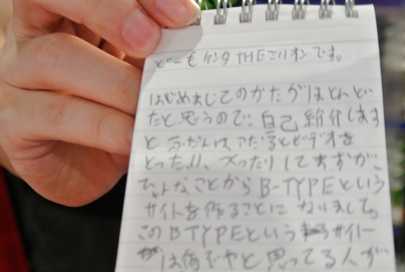 どーもケンタTHEミリオンです。
はじめましてのかたがほとんど
だと思うので、自己紹介します
と ふだんは、
とったり、つったりしてますが、
ひょなことからB-TYPEという
サイトを作ることになりまして。
このBTYPEというサイト
は何ぞやと思ってる人が